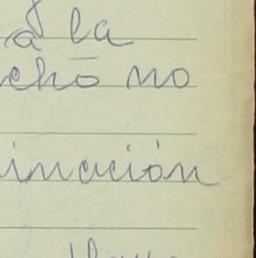 a la
cho no
inación